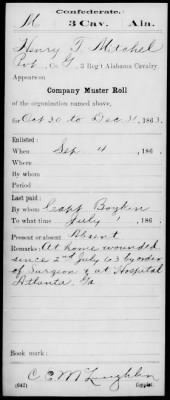 Confederate.
M 3 Cav. Ala.
Henry T Mitchel
Pvt, Co. G, 3 Reg't Alabama Cavalry
Appears on
Company Muster Roll
of the organization named above,
for Oct 30 to Dec 31, 1863.
Enlisted:
When Sep 4, 186
Where
By whom
Period
Last paid:
By whom Capt Boykin
To what time July 1, 186
Present or absent Absent
Remarks: At home wounded
since 2nd July 63 by order
of Surgeon at Hospital
Atlanta, Ga
Book mark:
(642)
Copyist.